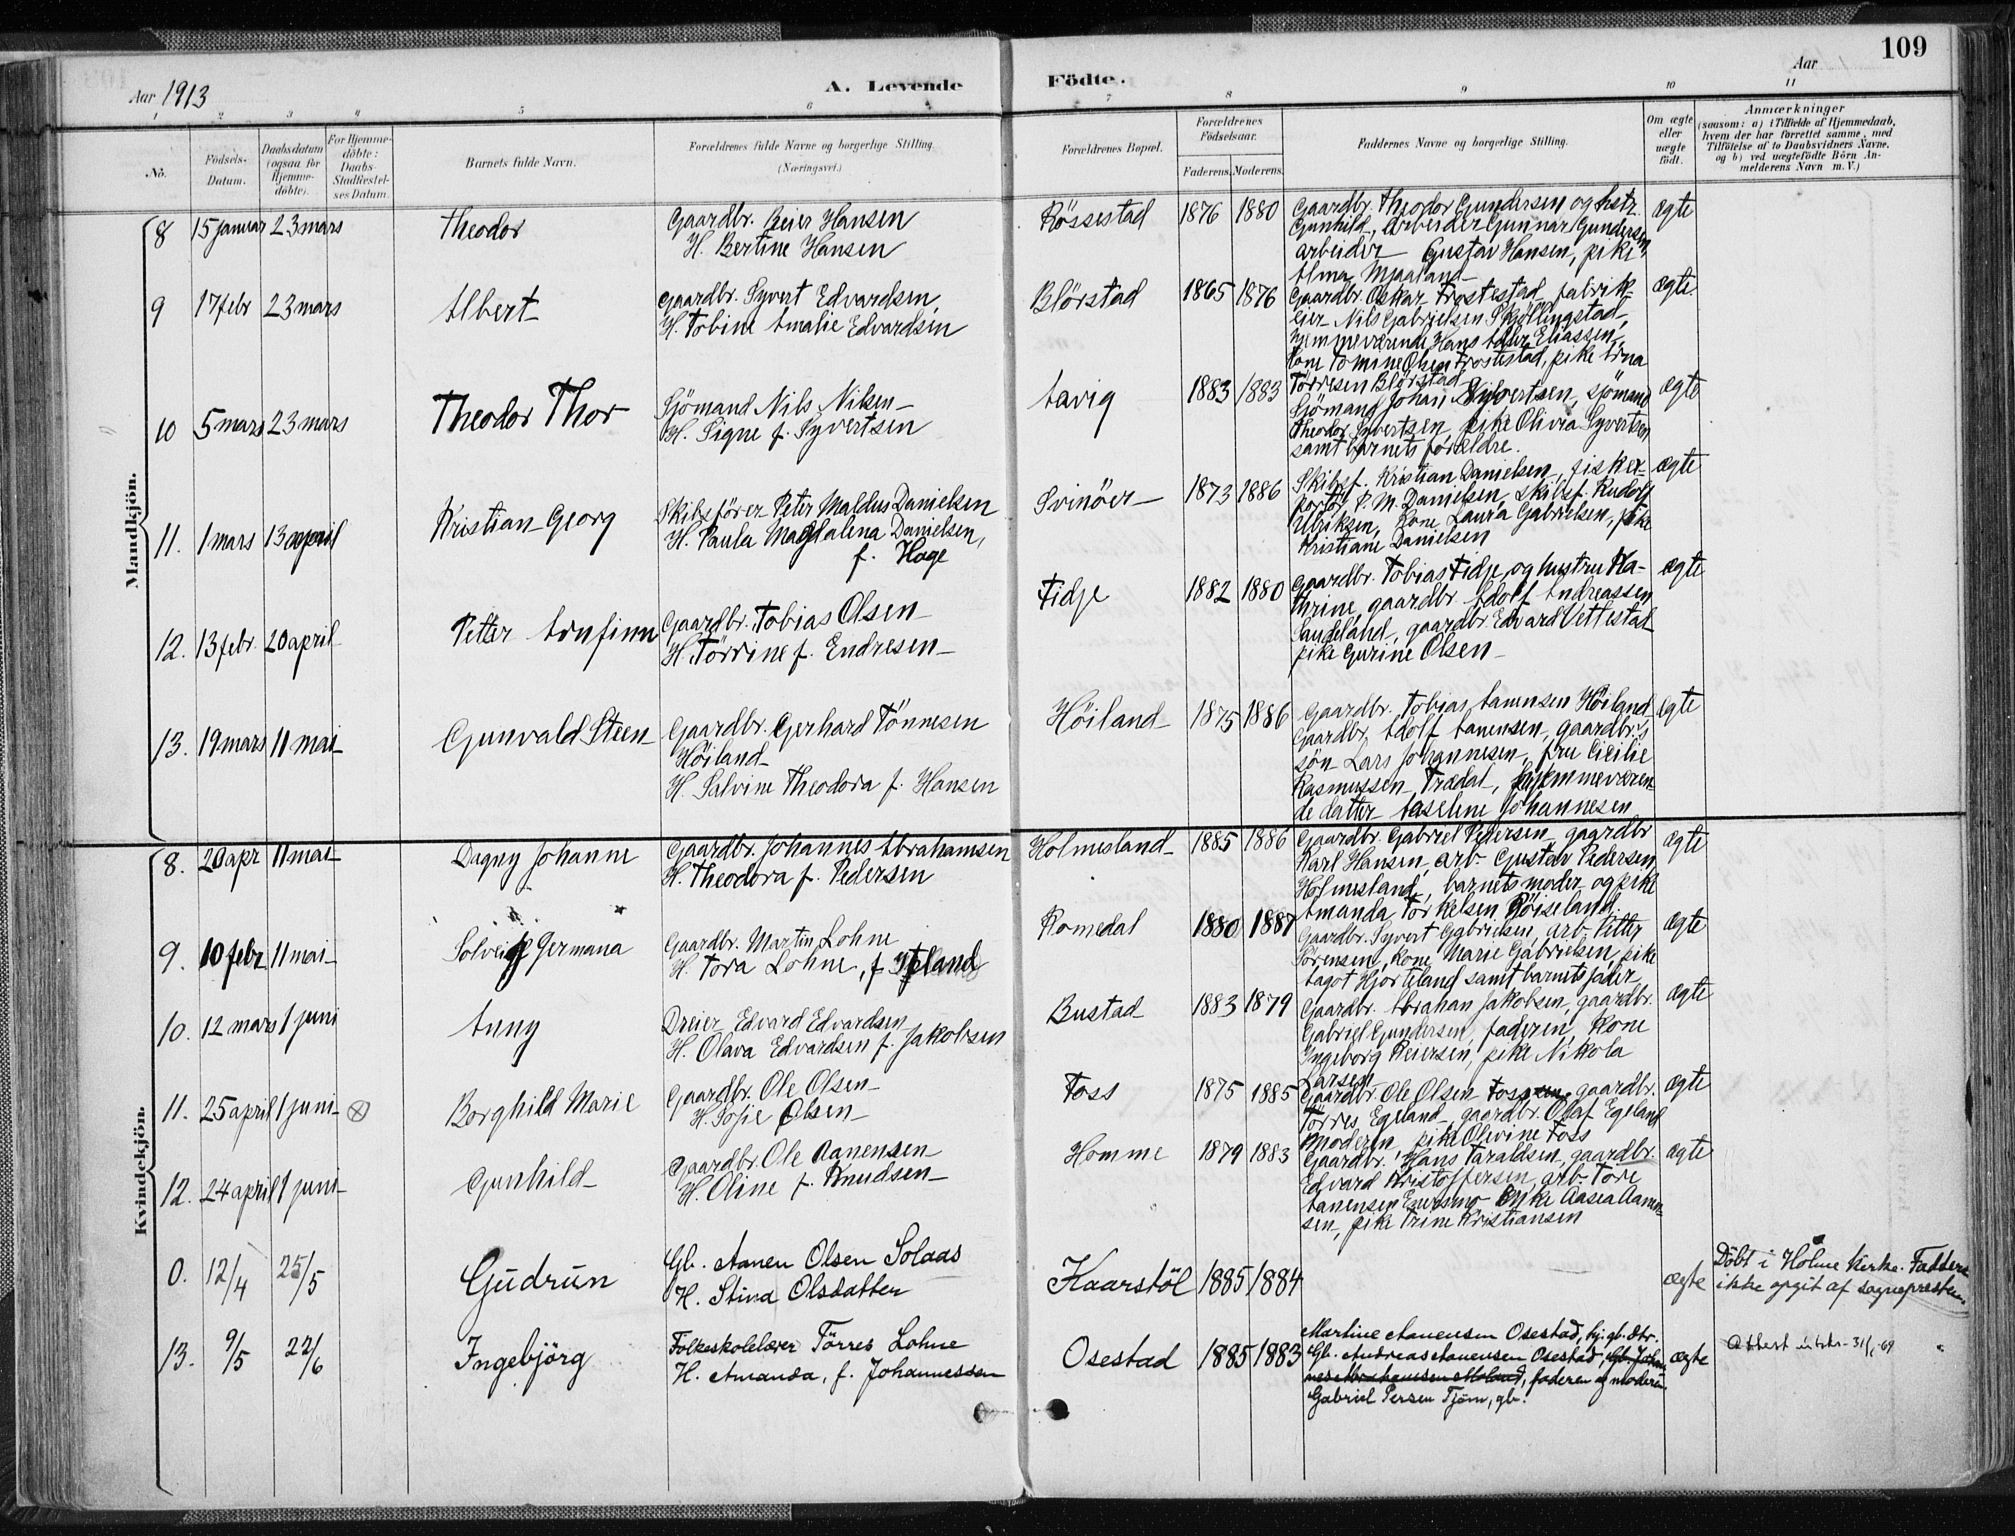 109
Aar 1913
A. Levende
Födte.
Aar
1 2 3 4 5 6 7 8 9 10 11
No.
Födsels-Datum.
Daabsdatum (ogsaa for Hjemme-döbte).
For Hjemme-döbte: Daabs-Stadfæstel-ses Datum.
Barnets fulde Navn.
Forældrenes fulde Navne og borgerlige Stilling. (Næringsvei.)
Forældrenes Bopæl.
Forældrenes Födselsaar.
Faderens. Moderens.
Faddernes Navne og borgerlige Stilling.
Om ægte eller uægte födt.
Anmærkninger
(saasom: a) i Tilfælde af Hjemmedaab,
hvem der har forrettet samme, med
Tilföielse af to Daabsvidners Navne,
og b) ved uægtefödte Börn An-
melderens Navn m. V.)
Mandkjön.
8 15 januar 23 mars Theodor
Gaardbr. Reier Hansen
H. Bertine Hansen
Røssestad 1876 1880
Gaardbr. Theodor Gundersen og hstr.
Gunhild, arbeider Gunnar Gundersen
arbeider Gustav Hansen, pike
Alma Mjaaland
ægte
9 17 febr 23 mars Albert
Gaardbr. Syvert Edvardsen
H. Tobine Amalie Edvardsen
Blørstad 1865 1876
Gaardbr. Oskar Frostestad, fabrik-
eier Nils Gabrielsen Skjøllingstad,
hjemmeværende Hans Eliassen,
Kone Tomine Olsen Frostestad, pike
Tørresen Blørstad
ægte
10 5 mars 23 mars Theodor Thor
Sjömand Nils Nilsen
H. Signe f. Syvertsen
Aavig 1883 1883
Sjömand Johan Syvertsen, sjömand
Theodor Syvertsen, pike Olivia Syvertsen
samt barnets forældre.
ægte
11. 1 mars 13 april Kristian Georg
Skibsförer Peter Maldus Danielsen
H. Paula Magdalena Danielsen,
f. Hage
Svinöer 1873 1886
Skibsf. Kristian Danielsen, fisker-
P. M. Danielsen, Skibsf. Rudolf
Ulriksen, Kone Laura Gabrielsen, pike
Kristiane Danielsen
ægte
12. 13 febr. 20 april Petter Arnfinn
Gaardbr. Tobias Olsen
H. Törrine f. Endresen
Fidje 1882 1880
Gaardbr. Tobias Fidje og hustru Ka-
thrine, gaardbr. Adolf Andreassen
Landeland, gaardbr. Edvard Vettestad
pike Gurine Olsen
ægte
13. 19 mars 11 mai Gunvald Steen
Gaardbr. Gerhard Tönnesen
Höiland
H. Salvine Theodora f. Hansen
Höiland 1875 1886
Gaardbr. Tobias Aanensen Höiland
Gaardbr. Adolf Aanensen, gaardbr.s
sön Lars Johannesen, fru Cicilie
Rasmussen Trædal, hjemmeværen-
de datter Aaselene Johannesen
ægte
Kvindekjön.
8. 20 apr 11 mai Dagny Johanne
Gaardbr. Johannes Abrahamsen
H. Theodora f. Pedersen
Holmesland 1885 1886
Gaardbr. Gabriel Pedersen, gaardbr
Karl Hansen, arb. Gustav Pedersen
Holmesland, barnets moder og pike
Amanda Torkelsen Röiseland
ægte
9. 10 febr 11 mai Solveig Germana
Gaardbr. Martin Lohne
H. Tora Lohne, f.
Romedal 1880 1887
Gaardbr. Syvert Gabrielsen, arb. Petter
Sörensen, Kone Marie Gabrielsen, pike
Aagot Hjorteland samt barnets fader
ægte
10. 12 mars 1 juni Anny
Dreier Edvard Edvardsen
H. Olava Edvardsen f. Jakobsen
Bustad 1883 1879
Gaardbr. Abrahan Jakobsen, gaardbr.
Gabriel Gundersen, faderen, Kone
Ingeborg Reiersen, pike Nikola
Larsen
ægte
11. 25 april 1 juni Borghild Marie
Gaardbr. Ole Olsen
H. Sofie Olsen
Foss 1875 1885
Gaardbr. Ole Olsen Foss, gaardbr.
Törres Egeland, gaardbr. Olaf Egeland
Moderen, pike Olivine Foss
ægte
12. 24 april 1 juni Gunhild
Gaardbr. Ole Aanensen
H. Oline f. Knudsen
Homme 1879 1883
Gaardbr. Hans Taraldsen, gaardbr.
Edvard Kristoffersen, arb. Tore
Aanensen pike Aasea Aanen-
sen, pike Trine Kristiansen
ægte
0. 12/4 25/5 Gudrun
Gb. Aanen Olsen Solaas
H. Stina Olsdatter
Kaarstöl 1885 1884
ægte
Döbt i Holme Kirke. Faddere
ikke opgit af sognepresten.
13. 9/5 22/6 Ingebjörg
Folkeskolelærer Törres Lohne
H. Amanda, f. Johannessen
Osestad 1885 1883
Martine Aanensen Osestad, hj. gb. dtr.
Gb. Andreas Aanensen Osestad, Gb. Johan-
nes Abrahamsen , faderen og moderen.
Gabriel Persen Tjöm, gb.
ægte
Attest 31/1-69